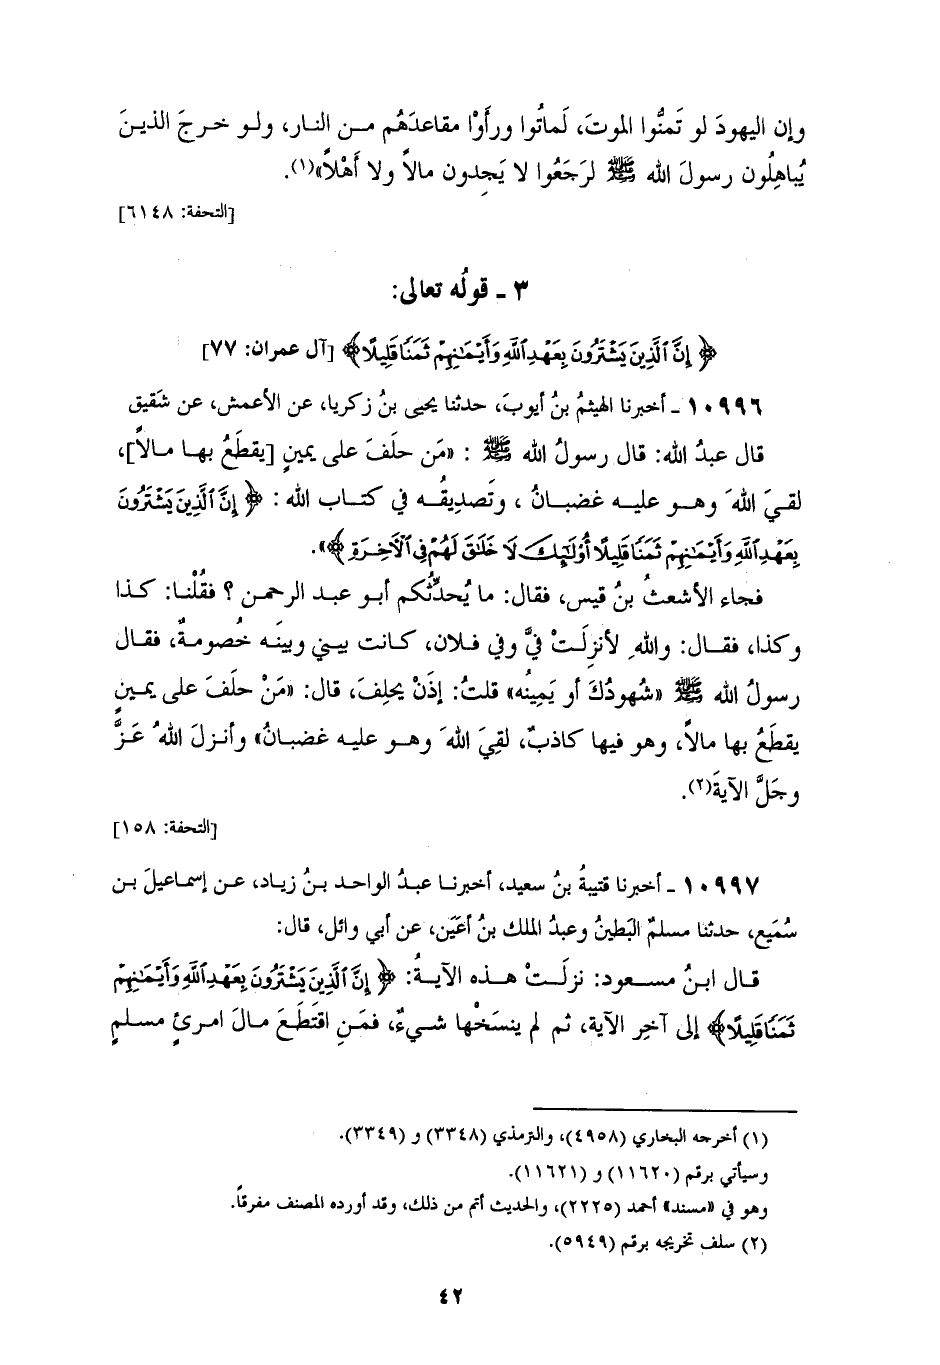 وإن اليهودَ لو تَمنُّوا الموتَ، لَماتُوا ورأَوْا مقاعدَهُم من النار، ولو خرجَ الذينَ
يُباهِلُون رسولَ الله ﷺ لرَجَعُوا لا يَجِدون مالاً ولا أَهْلاً»(١).
[التحفة: ٦١٤٨]
٣ ـ قولُه تعالى:
﴿إِنَّ ٱلَّذِينَ يَشْتَرُونَ بِعَهْدِ ٱللَّهِ وَأَيْمَـٰنِهِمْ ثَمَنًا قَلِيلًا﴾ [آل عمران: ٧٧]
١٠٩٩٦ ـ أخبرنا الهيثمُ بنُ أيوبَ، حدثنا يحيى بنُ زكريا، عن الأعمش، عن شَقيق
قال عبدُ الله: قال رسولُ الله ﷺ : «مَن حلَفَ على يمينٍ [يقطَعُ بها مالاً]،
لقيَ اللهَ وهو عليه غضبانُ ، وتَصدِيقُه في كتاب الله : ﴿إِنَّ ٱلَّذِينَ يَشْتَرُونَ
بِعَهْدِ ٱللَّهِ وَأَيْمَـٰنِهِمْ ثَمَنًا قَلِيلًا أُوْلَـٰٓئِكَ لَا خَلَـٰقَ لَهُمْ فِي ٱلْأَخِرَةِ﴾».
فجاء الأشعثُ بنُ قيس، فقال: ما يُحدِّثُكم أبو عبد الرحمن ؟ فقُلْنا: كذا
وكذا، فقال: واللهِ لأُنزِلَتْ فيَّ وفي فلان، كانت بيني وبينَه خُصومةٌ، فقال
رسولُ الله ﷺ «شُهودُكَ أو يَمِينُه» قلتُ: إذَنْ يحلِفَ، قال: «مَنْ حلَفَ على يمينٍ
يقطَعُ بها مالاً، وهو فيها كاذبٌ، لقِيَ اللهَ وهو عليه غضبانُ» وأنزلَ اللهُ عَزَّ
وجَلَّ الآيةَ(٢).
[التحفة: ١٥٨]
١٠٩٩٧ ـ أخبرنا قتيبةُ بنُ سعيد، أخبرنا عبدُ الواحد بنُ زياد، عن إسماعيلَ بن
سُمَيع، حدثنا مسلمٌ البَطينُ وعبدُ الملك بنُ أعيَن، عن أبي وائل، قال:
قال ابنُ مسعود: نزلَتْ هذه الآيةُ: ﴿إِنَّ ٱلَّذِينَ يَشْتَرُونَ بِعَهْدِ ٱللَّهِ وَأَيْمَـٰنِهِمْ
ثَمَنًا قَلِيلًا﴾ إلى آخِر الآية، ثم لم ينسَخْها شيءٌ، فمَنِ اقتَطَعَ مالَ امرئٍ مسلمٍ
(١) أخرجه البخاري (٤٩٥٨)، والترمذي (٣٣٤٨) و (٣٣٤٩).
وسيأتي برقم (١١٦٢٠) و (١١٦٢١).
وهو في «مسند» أحمد (٢٢٢٥)، والحديث أتم من ذلك، وقد أورده المصنف مفرقاً.
(٢) سلف تخريجه برقم (٥٩٤٩).
٤٢